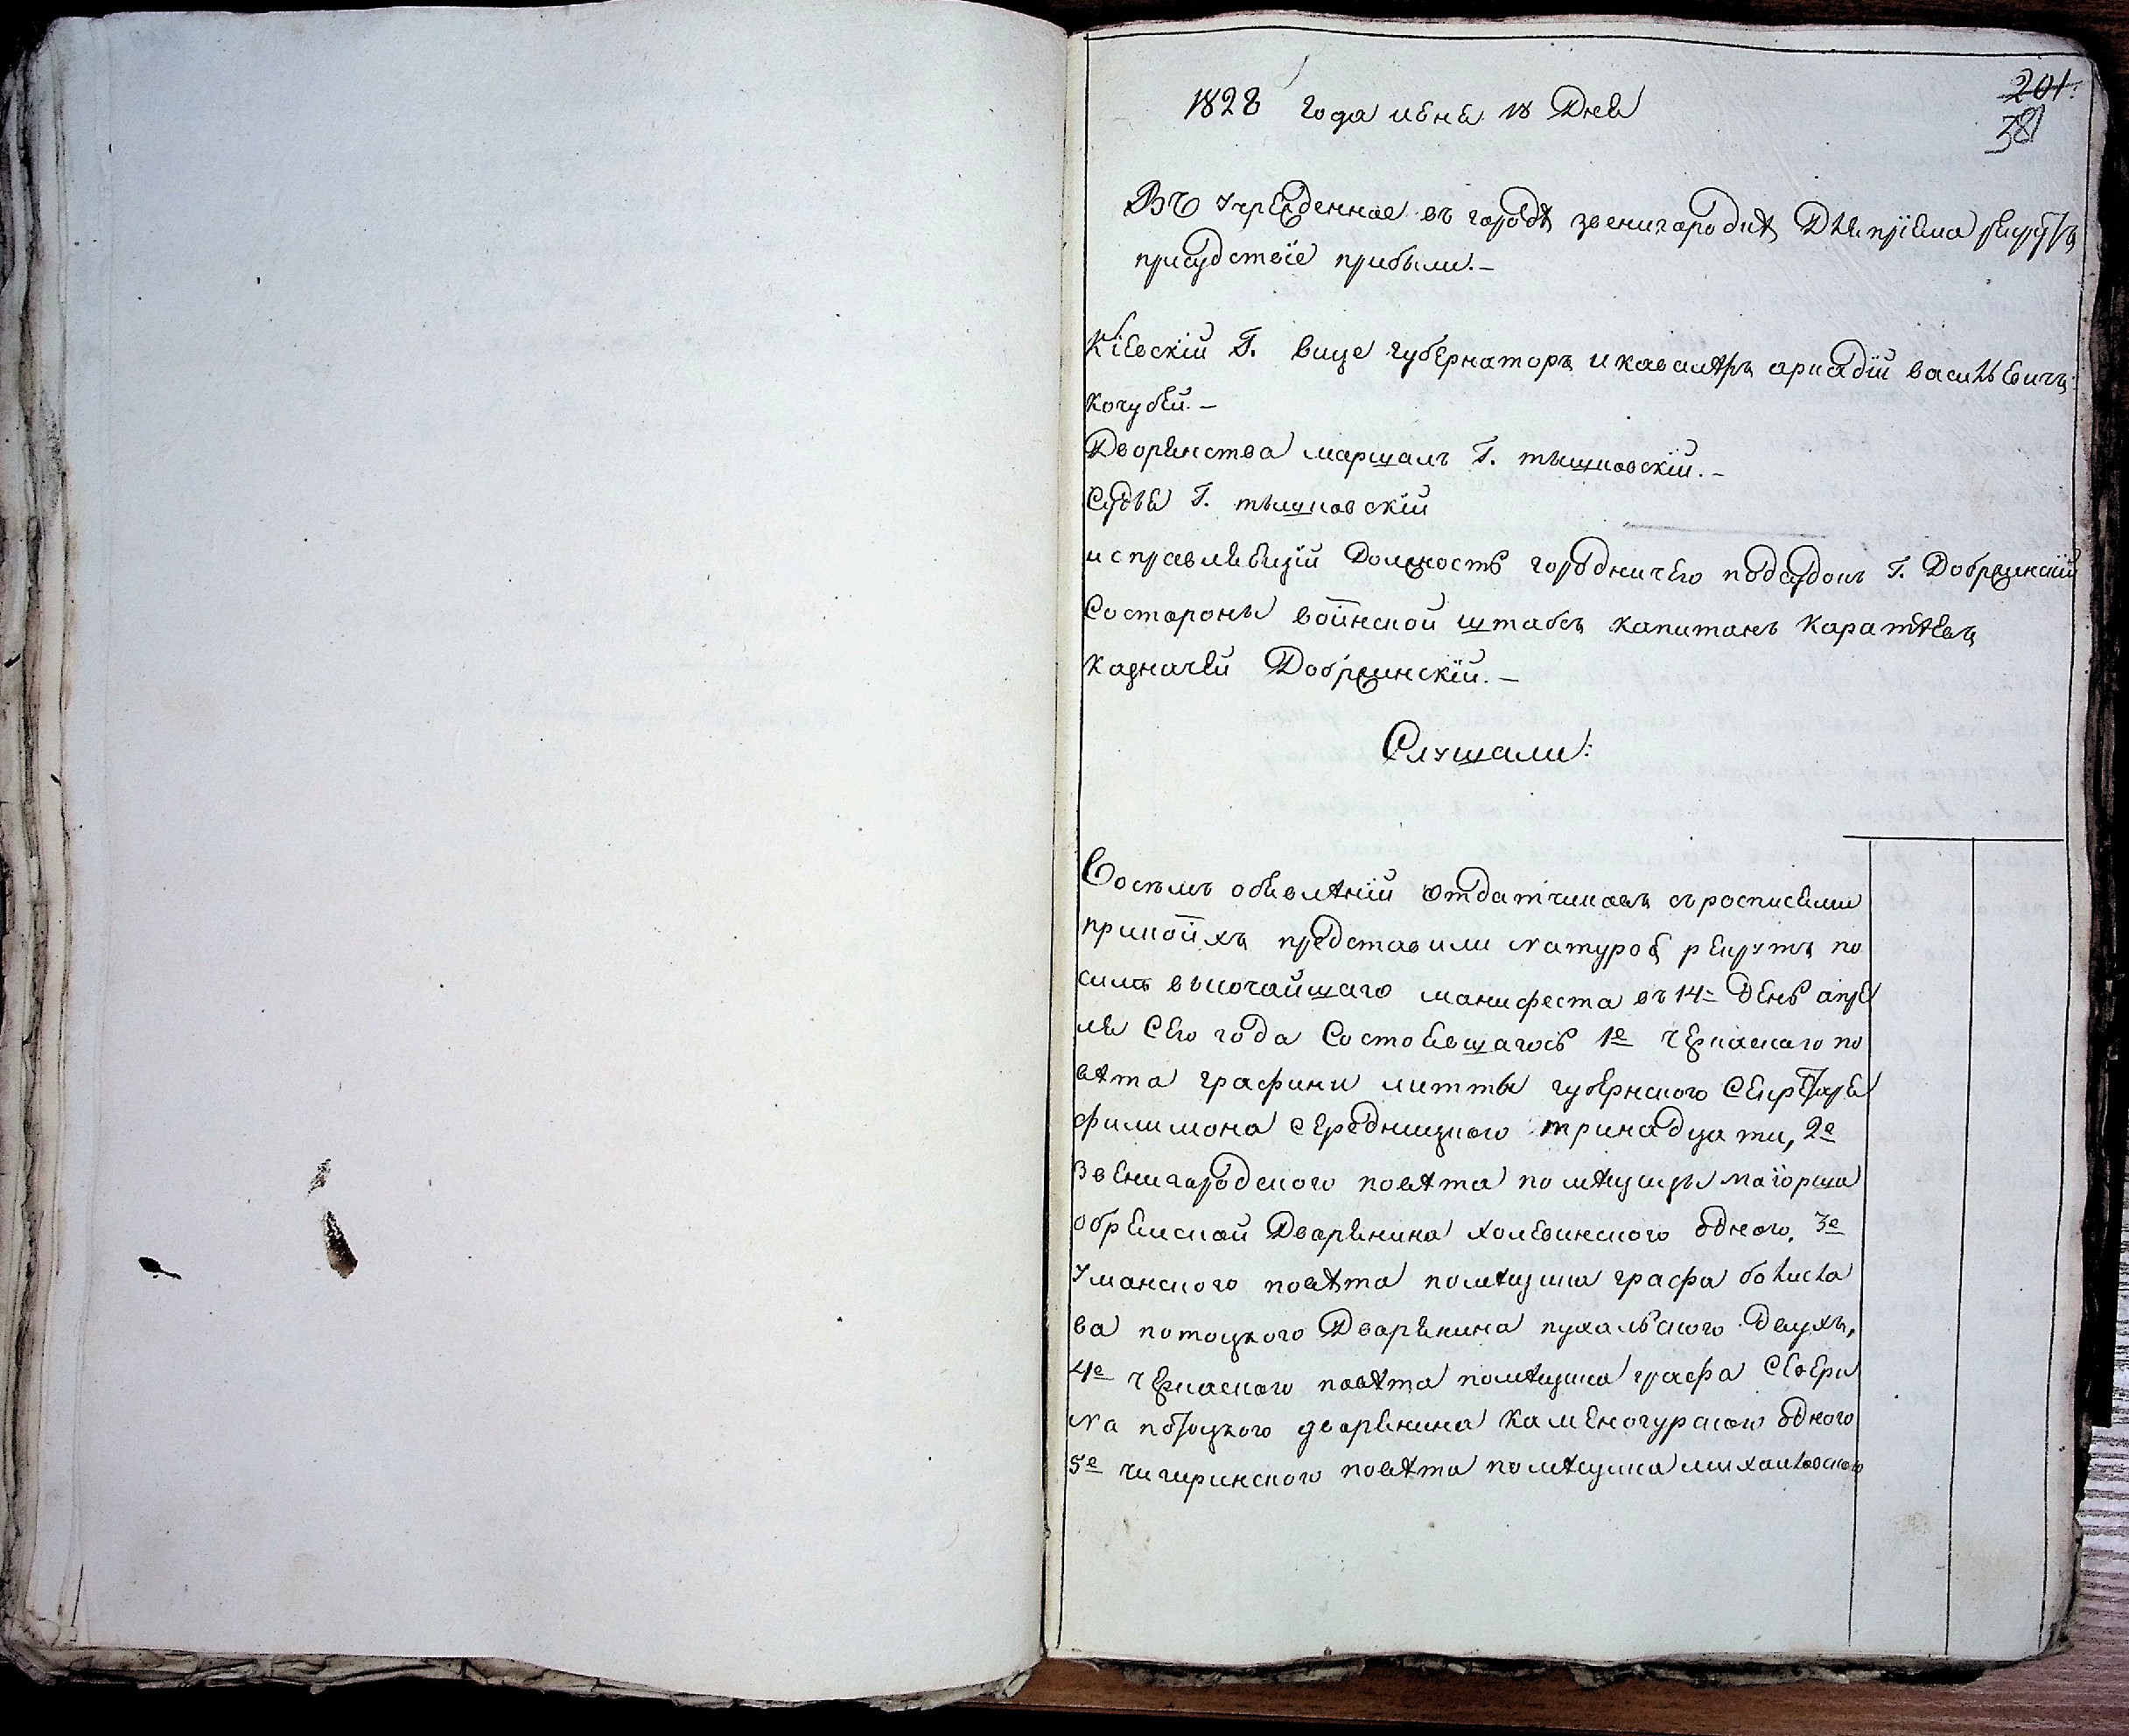 201.
38
1828 года июня 18 Дня
Въ учрежденное въ городѣ звенигородкѣ Для пріема рекрутъ
присудствіе прибыли. –
Кіевскій Г. вице губернаторъ и кавалѣръ аркадій васильевичъ
кочубей. –
Дворянства маршалъ Г. тышковскій. –
Судья Г. тышковскій
исправляющій Должность городничего подсудокъ Г. Добржинскій
Со стороны воинской штабсъ капитанъ каратѣевъ
казначей Добржинскій. –
Слушали:
Восемъ обявлѣній отдатчиковъ съ росписями
при коихъ представили натурою рекрутъ по
силѣ высочайшаго манифеста въ 14= День апре
ля Сего года Состоявшагось 1е черкаского по
вѣта графини литты губернского Секретаря
филимона середницкого тринадцати, 2е
Звенигородского повѣта помѣщицы маіорши
Дворянина одного, 3е
Уманского повѣта помѣщика графа болисла
ва потоцкого Дворянина пухальского Двухъ,
4е черкаского повѣта помѣщика графа Севери
на потоцкого дворянина каменогурского одного
5е чигиринского повѣта помѣщика михаловского